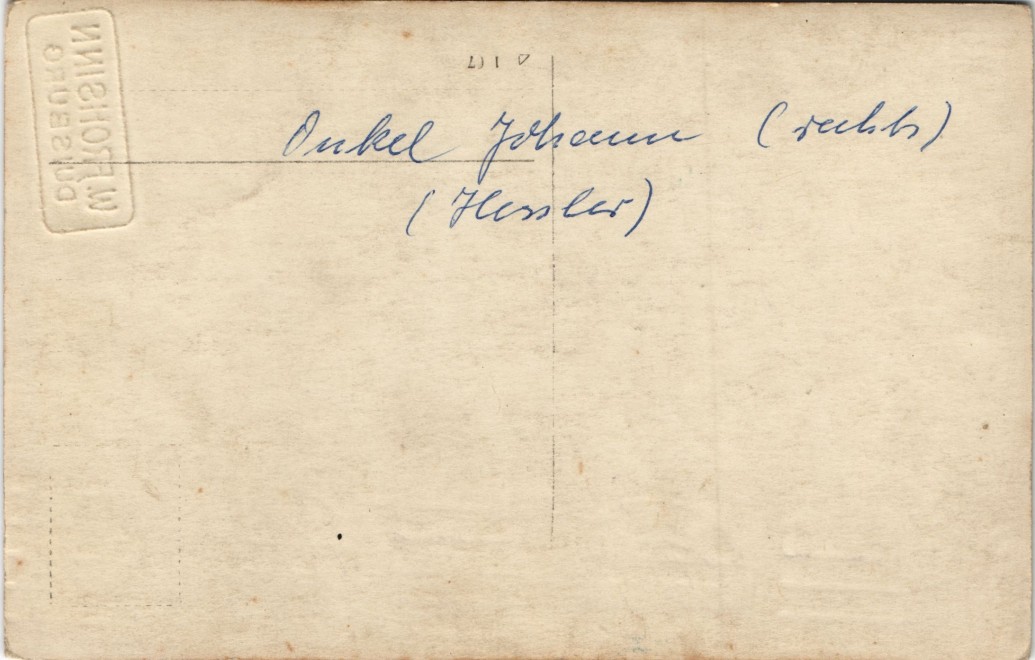 W.FROHSINN
DUISBURG
Onkel Johann (rechts)
(Hessler)